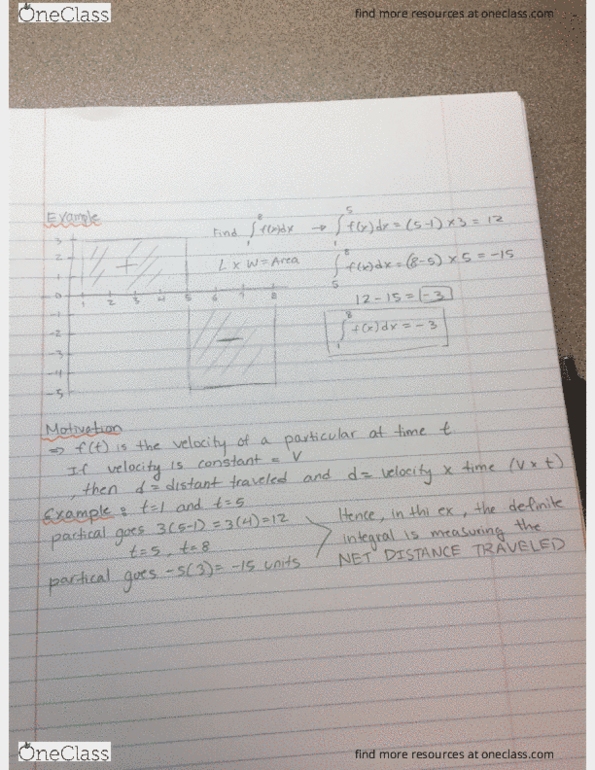 OneClass
find more resources at oneclass.com
Example
Find ∫₁⁸ f(x)dx → ∫₁⁵ f(x)dx = (5-1) x 3 = 12
L x W = Area
∫₅⁸ f(x)dx = (8-5) x 5 = -15
12 - 15 = -3
∫₁⁸ f(x)dx = -3
3
2
1
0 1 2 3 4 5 6 7 8
-1
-2
-3
-4
-5
+
-
Motivation
⇒ f(t) is the velocity of a particular at time t
If velocity is constant = V
, then d = distant traveled and d = velocity x time (v x t)
Example: t=1 and t=5
partical goes 3(5-1) = 3(4) = 12
t=5, t=8
partical goes -5(3) = -15 units
Hence, in thi ex, the definite
integral is measuring the
NET DISTANCE TRAVELED
OneClass
find more resources at oneclass.com